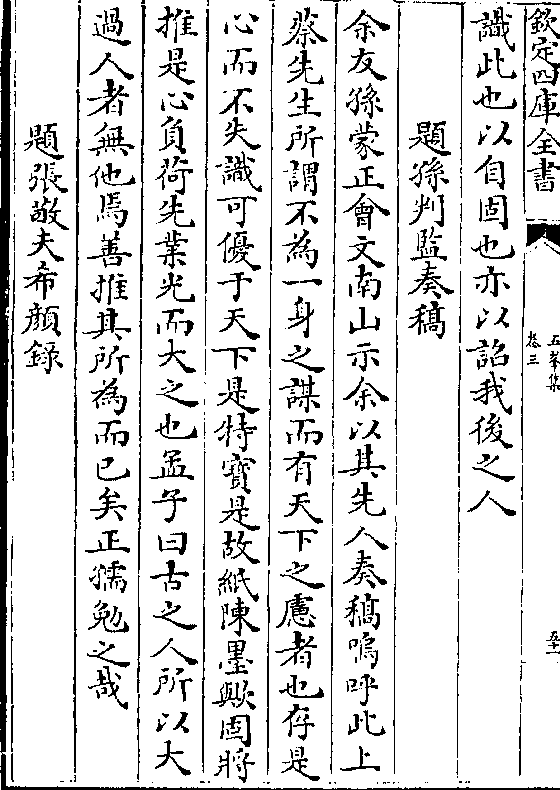 欽定四庫全書
五峯集
卷三
五十一
識此也以自固也亦以詒我後之人
題孫判監奏稿
余友孫蒙正會文南山示余以其先人奏稿嗚呼此上
蔡先生所謂不為一身之謀而有天下之慮者也存是
心而不失識可優于天下是特寶是故紙陳墨歟固將
推是心負荷先業光而大之也孟子曰古之人所以大
過人者無他焉善推其所為而已矣正孺勉之哉
題張敬夫希顔錄